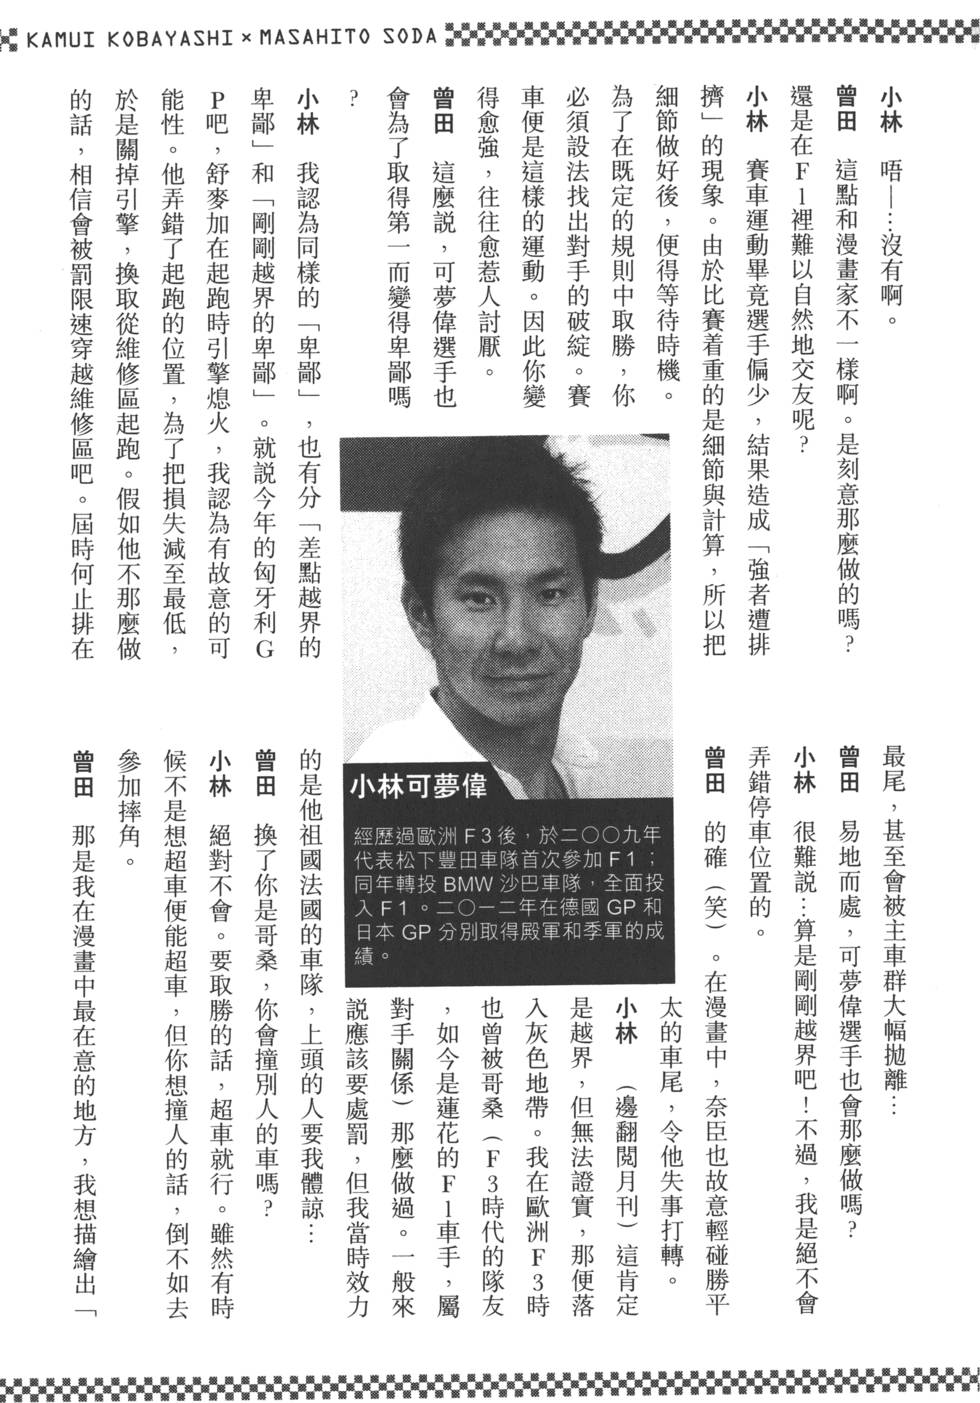 KAMUI KOBAYASHI × MASAHITO SODA
小林　唔—…沒有啊。
曾田　這點和漫畫家不一樣啊。是刻意那麼做的嗎？
還是在F1裡難以自然地交友呢？
小林　賽車運動畢竟選手偏少，結果造成「強者遭排
擠」的現象。由於比賽着重的是細節與計算，所以把
細節做好後，便得等待時機。
為了在既定的規則中取勝，你
必須設法找出對手的破綻。賽
車便是這樣的運動。因此你變
得愈強，往往愈惹人討厭。
曾田　這麼説，可夢偉選手也
會為了取得第一而變得卑鄙嗎
？
小林　我認為同樣的「卑鄙」，也有分「差點越界的
卑鄙」和「剛剛越界的卑鄙」。就説今年的匈牙利G
P吧，舒麥加在起跑時引擎熄火，我認為有故意的可
能性。他弄錯了起跑的位置，為了把損失減至最低，
於是關掉引擎，換取從維修區起跑。假如他不那麼做
的話，相信會被罰限速穿越維修區吧。屆時何止排在
最尾，甚至會被主車群大幅拋離…
曾田　易地而處，可夢偉選手也會那麼做嗎？
小林　很難説…算是剛剛越界吧！不過，我是絕不會
弄錯停車位置的。
曾田　的確（笑）。在漫畫中，奈臣也故意輕碰勝平
太的車尾，令他失事打轉。
小林　（邊翻閲月刊）這肯定
是越界，但無法證實，那便落
入灰色地帶。我在歐洲F3時
也曾被哥桑（F3時代的隊友
，如今是蓮花的F1車手，屬
對手關係）那麼做過。一般來
説應該要處罰，但我當時效力
的是他祖國法國的車隊，上頭的人要我體諒…
曾田　換了你是哥桑，你會撞別人的車嗎？
小林　絕對不會。要取勝的話，超車就行。雖然有時
候不是想超車便能超車，但你想撞人的話，倒不如去
參加摔角。
曾田　那是我在漫畫中最在意的地方，我想描繪出「
小林可夢偉
經歷過歐洲F3後，於二〇〇九年
代表松下豐田車隊首次參加F1；
同年轉投BMW沙巴車隊，全面投
入F1。二〇一二年在德國GP和
日本GP分別取得殿軍和季軍的成
績。